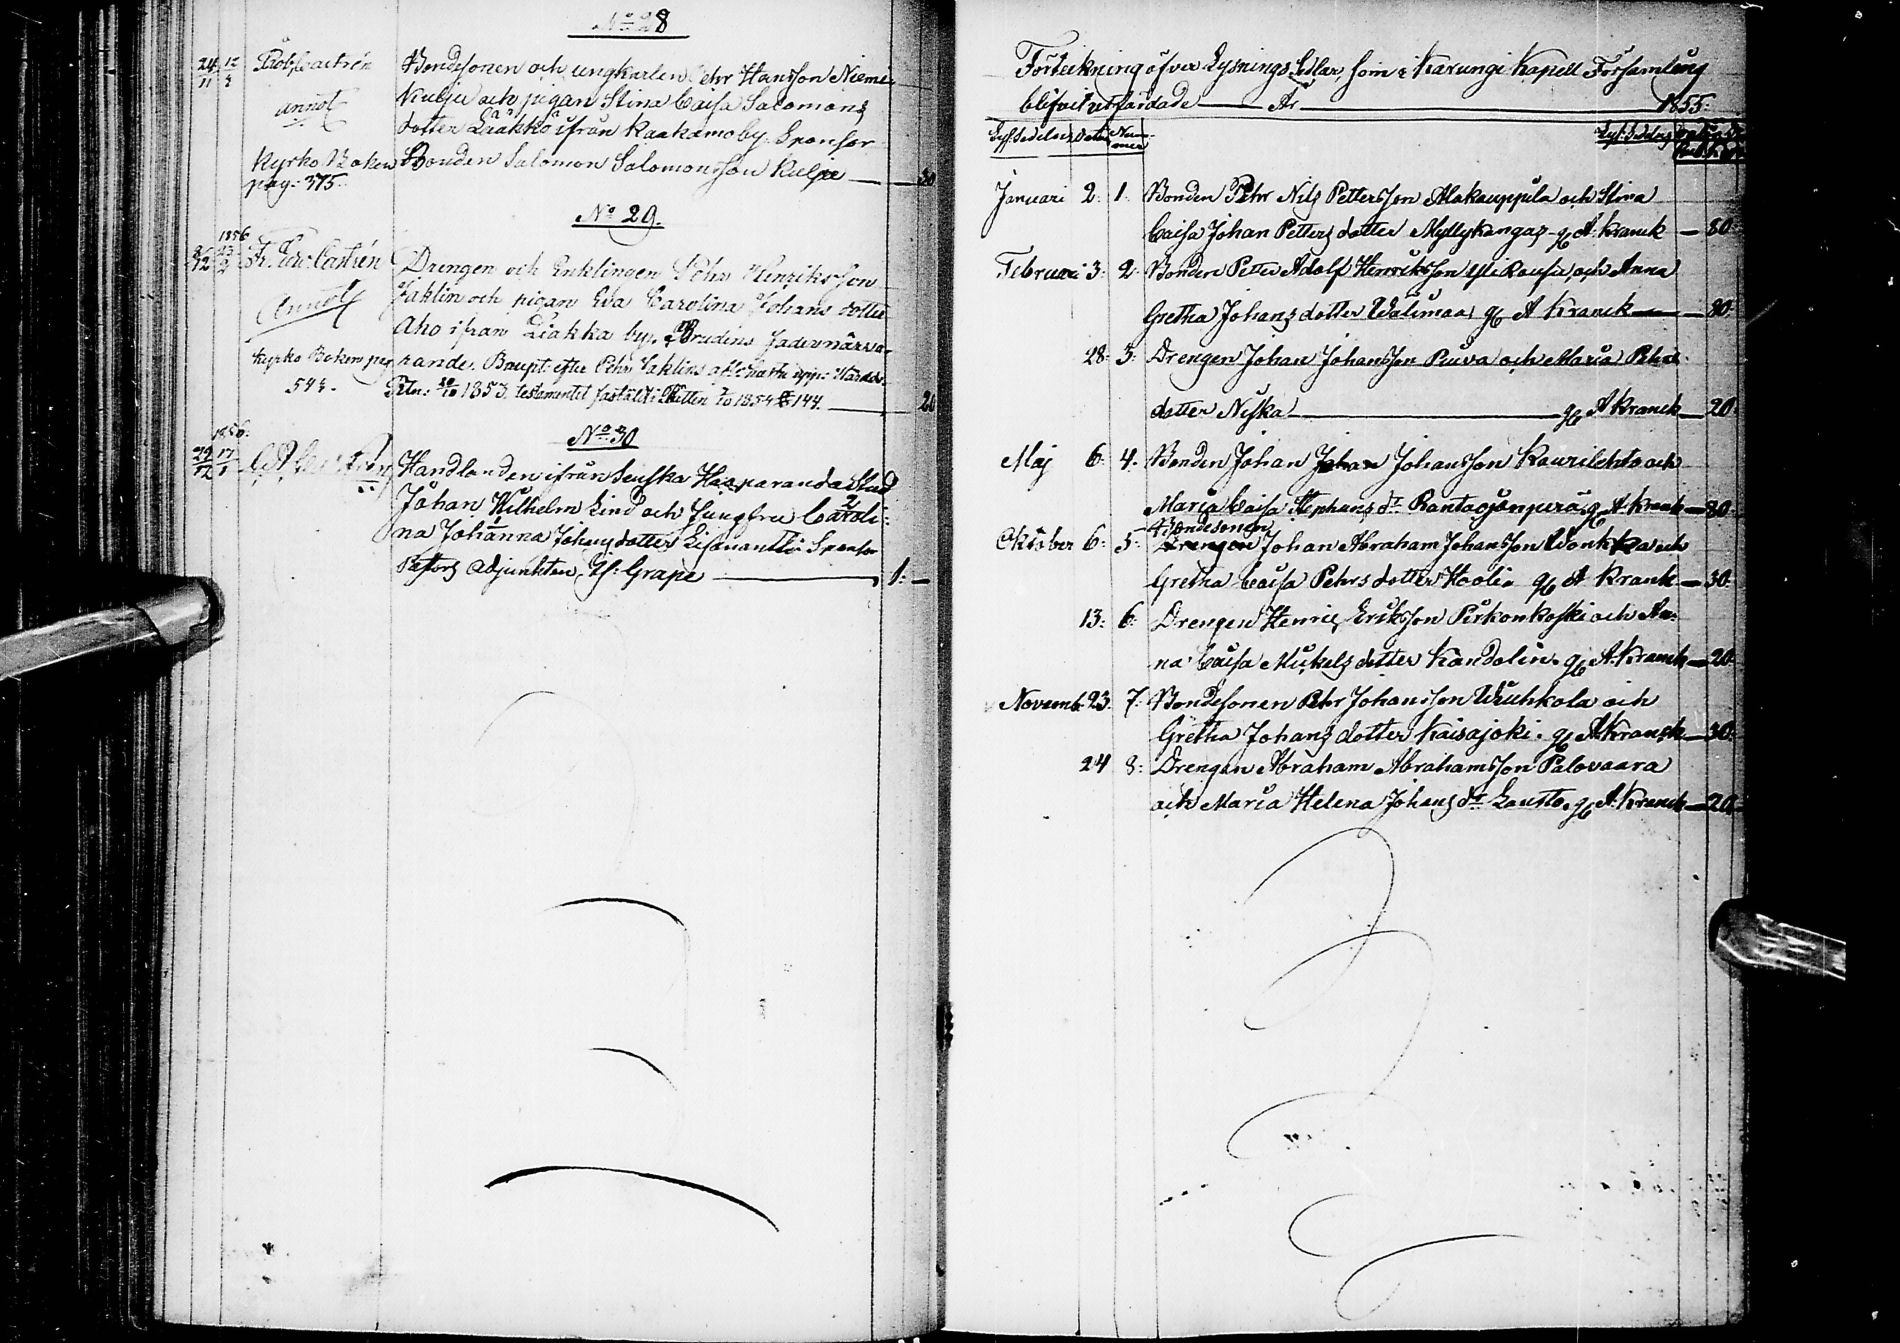 No 28
24/11 12/4 Prob. Castrén Bondesonen och ungkarlen Pehr Hansson Niemi-
annot Kulju och pigan Stina Caisa Salomons
dotter Liakka ifrån Kaakamo by. Sponsor
Kyrko Boken Bonden Salomon Salomonsson Kulju — 30
pag: 375.
No 29.
1856
Castrén Drengen och Enklingen Pehr Henriksson
annot Jaklin och pigan Eva Carolina Johans dotter
Aho ifrån Liakka by, Brudens fader närva-
Kyrko Boken pag rande. Boupt: efter Pehr Jaklins
543. 1853. testamentet 1854 § 144. — 20
No 30
1856.
29/12 17/1 Handlanden ifrån Svenska Haaparanda Stad
Johan Wilhelm Lind och Jungfru Caroli-
na Johanna Johans dotter Sponsor
Pastors Adjunkten, Grape — 1: —
Förteckning öfver Lysnings Sedlar, som i Karungi Kapell Församling
blifvit utfärdade — År — 1855.
Lys: Sedelns Datum Nummer
Januari 2. 1. Bonden Pehr Nils Pettersson Alakauppila och Stina
Caisa Johan Petters dotter Myllykangas A Kranck — 80
Februari 3: 2. Bonden Petter Adolf Henriksson Yli Raufia, och Anna
Gretha Johans dotter Walimaa A Kranck — 80
28: 3: Drengen Johan Johansson Puva och Maria Pehrs
dotter Niska — A Kranck — 20
Maj 6: 4. Bonden Johan Johan Johansson Kaurilehto och
Maria Caisa Stephans dr Rantaojänperä A. Kranck — 80
Bondesonen
Oktober 6: 5. Drengen Johan Abraham Johansson Wonkka och
Gretha Caisa Pehrs dotter Hooli A Kranck — 30
13: 6: Drengen Henric Eriksson Pirkonkoski och An-
na Caisa Mickels dotter Kandolin. A. Kranck — 20
Novemb. 23. 7. Bondesonen Pehr Johansson Wuhkola och
Gretha Johans dotter Kaisajoki. A. Kranck — 30
24 8: Drengen Abraham Abrahamsson Palovaara
och Maria Helena Johans dr Lausto. A. Kranck — 20